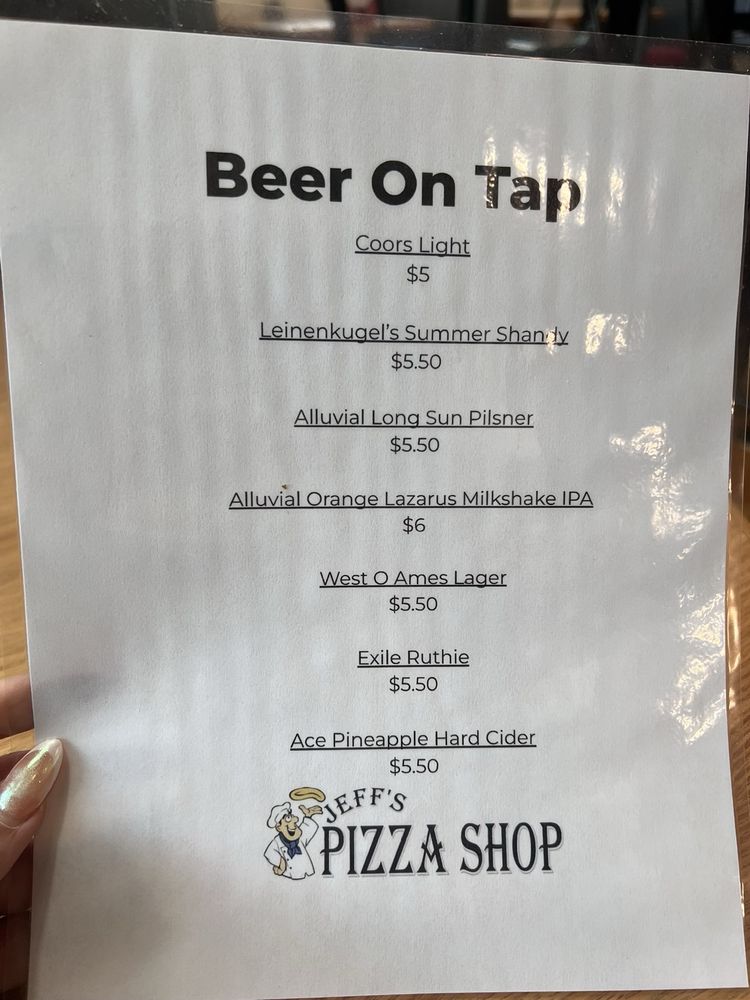 Beer On Tap
Coors Light
$5
Leinenkugel's Summer Shandy
$5.50
Alluvial Long Sun Pilsner
$5.50
Alluvial Orange Lazarus Milkshake IPA
$6
West O Ames Lager
$5.50
Exile Ruthie
$5.50
Ace Pineapple Hard Cider
$5.50
JEFF'S
PIZZA SHOP